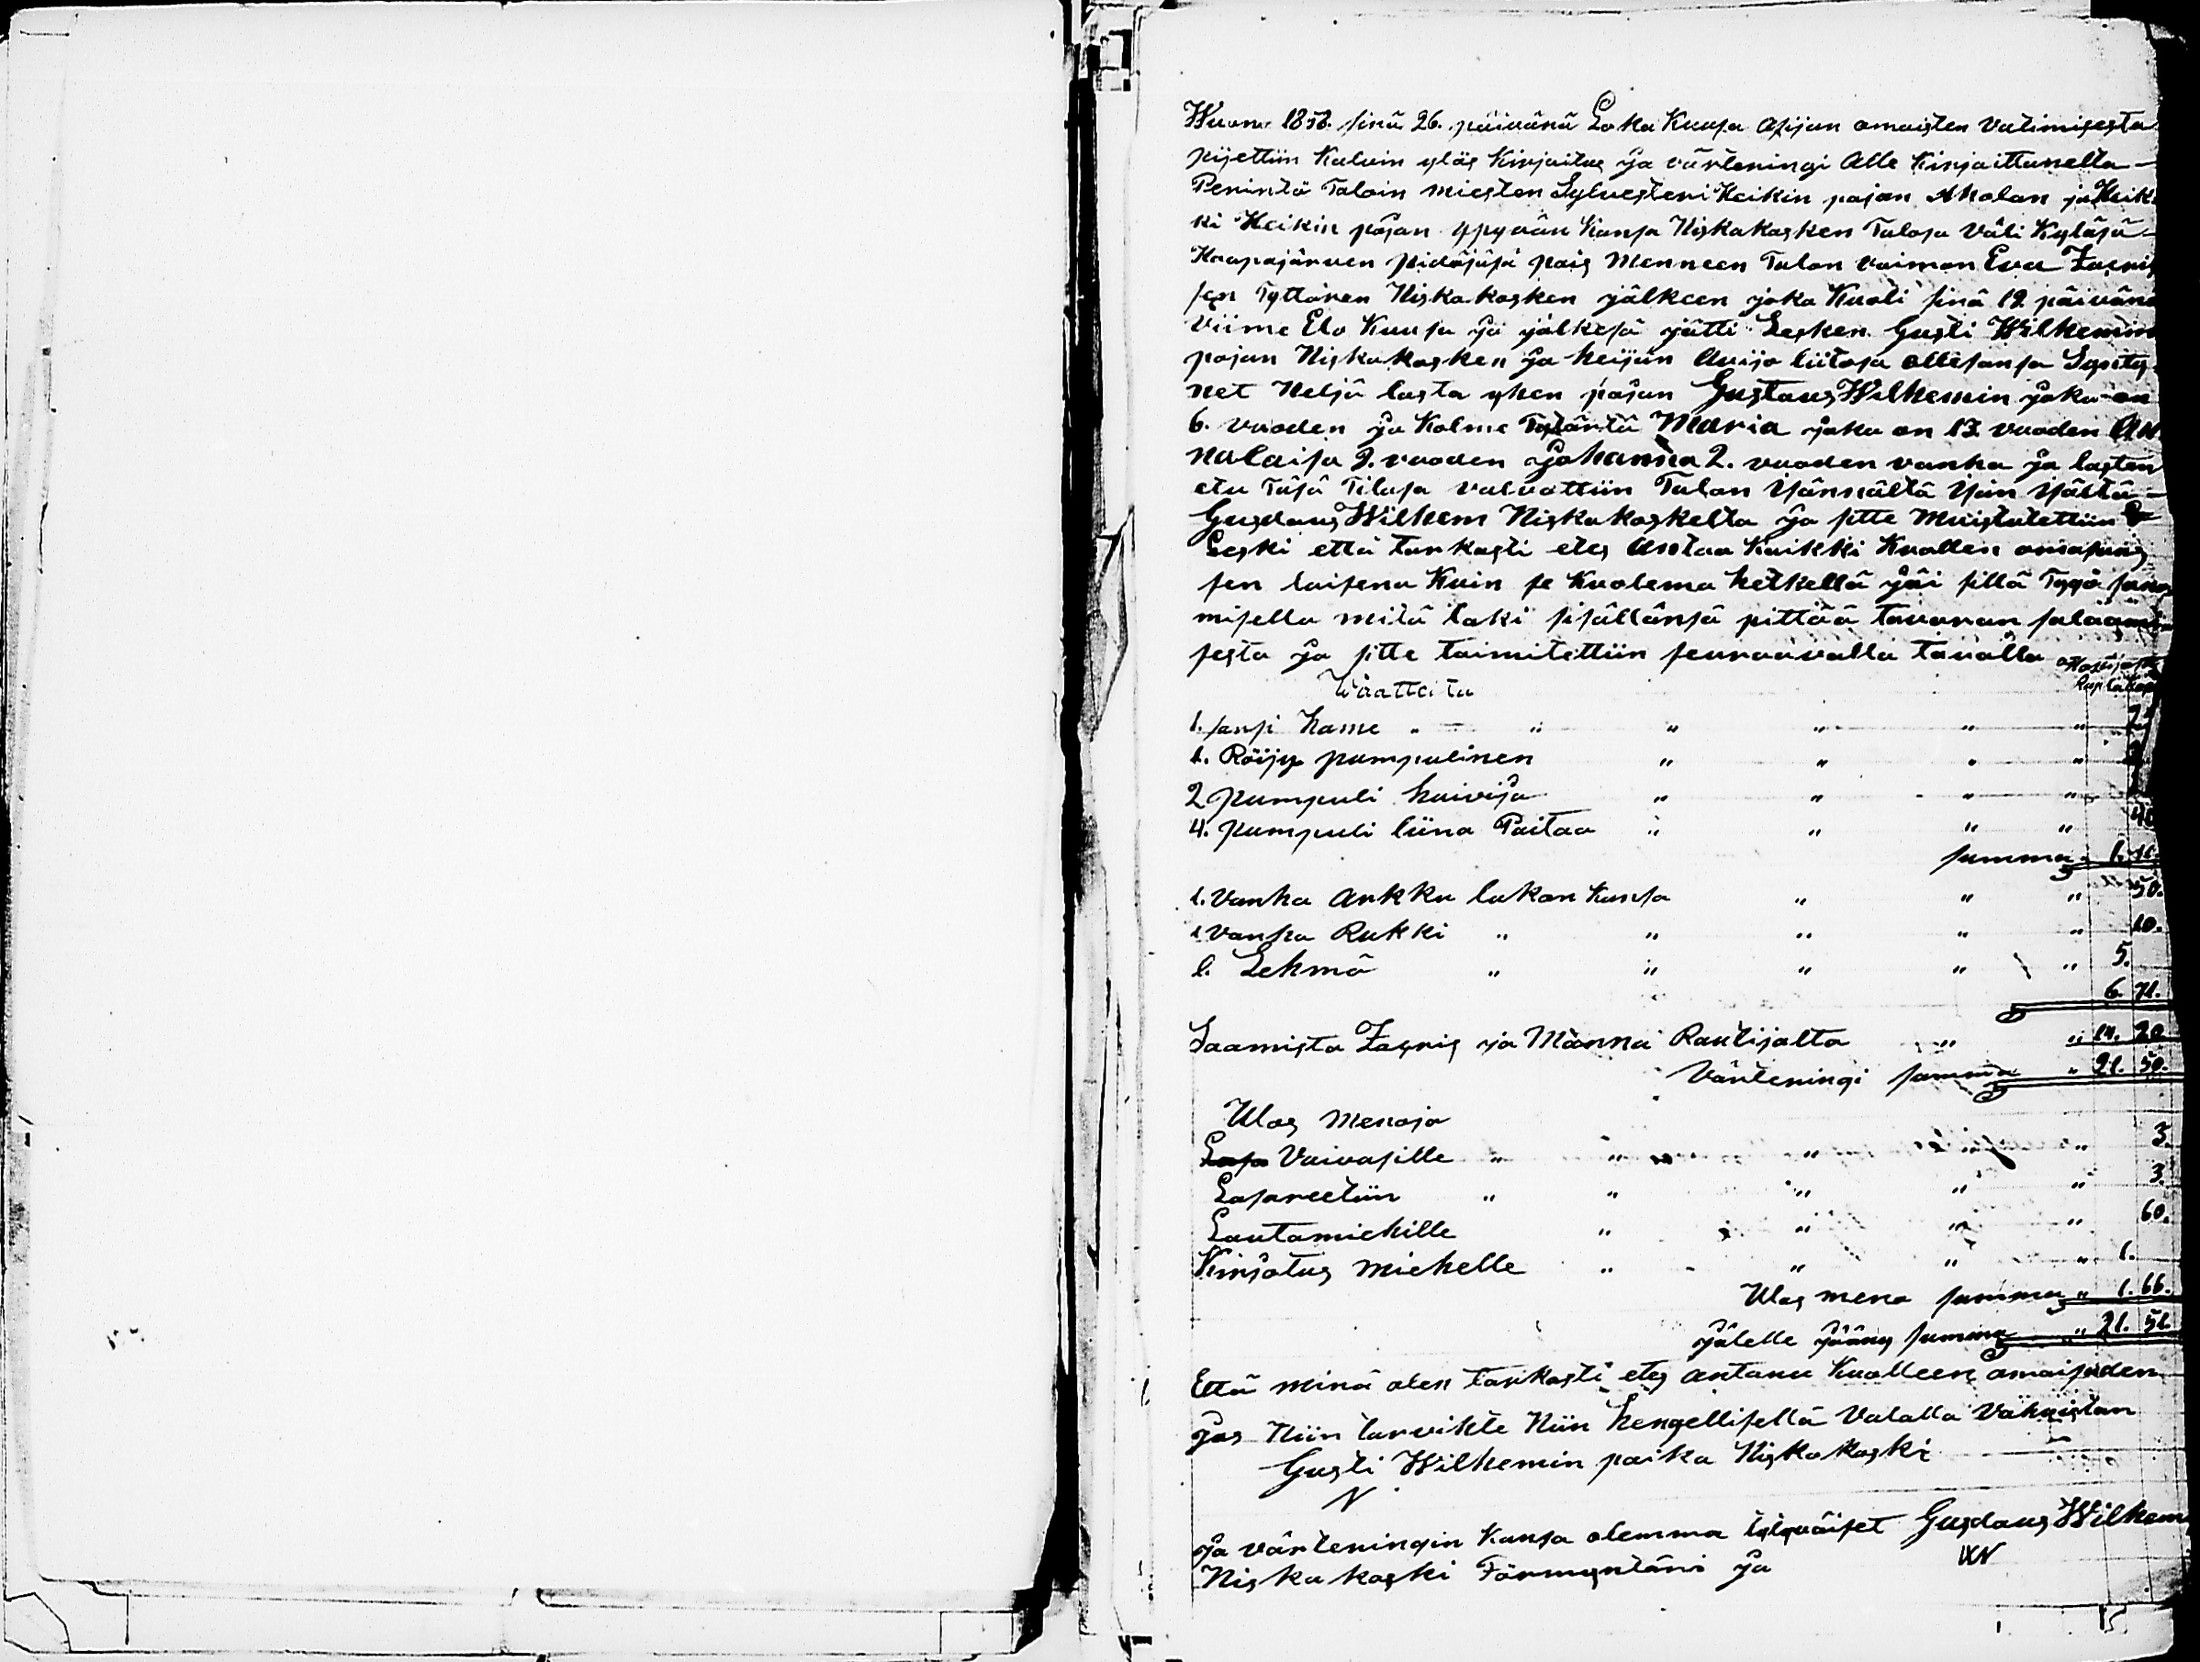 Wuonna 1858. sinä 26. päivänä Loka Kuusa asijan omaisten vatimisesta
pijettiin Kaluin ylös Kirjaitus ja värteningi Alle Kirjaittaneelta
Perintö Taloin miesten Sylvesteri Heikin pojan Aholan ja Heik-
ki Heikin pojan Yppyvän Kansa Niskakosken Talosa Väli Kyläsä
Haapajärven pidäjäsä pois Menneen Talon vaimon Eva Zacris
sen Tyttären Niskakosken jälkeen joka Kuoli sinä 19. päivänä
Viime Elo Kuusa ja jälkesä jätti Lesken Gusti Wilhemin
pojan Niskakosken ja heijän Avijo liitosa ollesansa Synty-
net Neljä lasta yhen pojan Gustavs Wilhemin joka on
6. vuoden ja Kolme Tytärtä Maria joka on 13. vuoden An
na Caisa 9. vuoden Johanna 2. vuoden vanha ja lasten
etu Täsä Tilasa valvottiin Talon Isännältä Isän Isältä
Gusdavs Wilhem Niskakoskelta ja sitte Muistutettiin
Leski että tarkasti etes Antaa Kaikki Kuollen omasuus
sen laisena Kuin se Kuolema hetkellä jäi sillä Tygö sano
misella mitä laki sisällänsä pittää tavaran salaami
sesta ja sitte toimitettiin seuraavalla tavalla Hopijasa
Wäatteita Rupla Kop
1. sarsi hame " " " " " "
1. Röijy pumpulinen " " " "
2 pumpuli huivija " " " "
4. pumpuli liina Paitaa " " " " 40
summa 1. 11.
1. Vanha Arkku lukon Kansa " " " 50.
1 Vanha Rukki " " " " " 10.
1. Lehmä " " " " " 5.
6. 71.
Saamista Zacris ja Männä Rautijalta " " 14. 20
Värteningi summa " 21. 50.
Ulos Menoja
Vaivasille " " " " " 3.
Lasareetiin " " " " " 3.
Lautamiehille " " " " 60.
Kirjotus miehelle " " " " 1.
Ulos meno summa " 1. 66.
jälelle jääny summa " 21. 51.
Että minä olen tarkasti etes antanu Kuolleen omaisuden
jos Niin tarvihte Niin hengellisellä Valalla Vahvistan
Gusti Wilhemin poika Niskakoski
N
ja värteningin Kansa olemma tytyväiset Gusdavs Wilhem
Niskakoski Förmyntäri ja